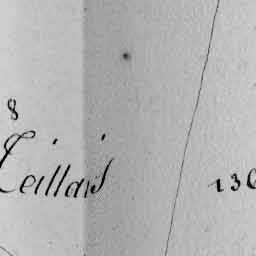 8
Teillais
136